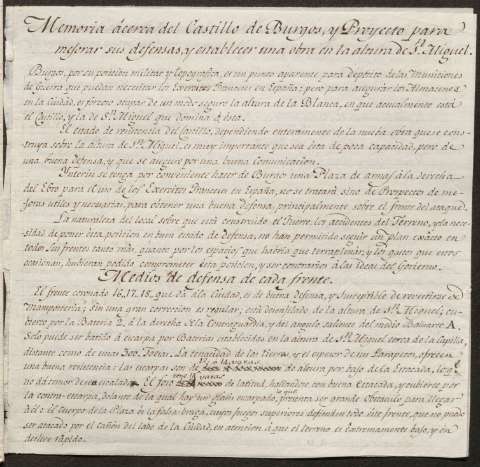 Memoria ácerca del Castillo de Burgos, y Proyecto para
mejorar sus defensas, y establecer una obra en la altura de Sn. Miguel.
Burgos, por su posicion militar y topografica, es un punto aparente para deposito de las Municiones
de Guerra que puedan necesitar los Exercitos Franceses en España; pero para asegurar los Almacenes
en la Ciudad, es forzoso ocupar de un modo seguro la altura de la Blanca, en que actualmente está
el Castillo, y la de Sn. Miguel que domina á ésta.
El estado de resistencia del Castillo, dependiendo enteramente de la nueva obra que se cons-
truya sobre la altura de Sn. Miguel, es muy importante que sea ésta de poca capacidad, pero de
una buena defensa, y que se asegure por una buena comunicacion.
Interin se tenga por conveniente hacer de Burgos una Plaza de armas á la derecha
del Ebro para el uso de los Exercitos Franceses en España, no se tratará sino de Proyectos de me-
joras utiles y necesarias, para obtener una buena defensa, principalmente sobre el frente del ataque.
La naturaleza del local sobre que está construido el Fuerte, los accidentes del Terreno, y la ne-
cesidad de poner ésta posicion en buen estado de defensa, no han permitido seguir un plan exácto en
todos sus frentes tanto mas, quanto por los espacios que habria que terraplenar, y los gastos que éstos
ocasionan, hubieran podido comprometer ésta posicion, y ser contrarios á las ideas del Govierno.
Medios de defensa de cada frente.
El frente coronado 16, 17, 18, que dá á la Ciudad, es de buena defensa, y susceptible de revestirse de
Mamposteria; sin una gran correccion es regular; está desenfilado de la altura de Sn. Miguel, cu-
bierto por la Bateria 2. á la derecha de la Contraguardia, y del angulo saliente del medio Baluarte A.
Solo puede ser batido á escarpa por Baterias establecidas en la altura de Sn. Miguel cerca de la Capilla,
distante como de unas 300 Toesas. La tenacidad de las tierras, y el espesor de sus Parapetos, ofrecen
una buena resistencia: las escarpas son de de altura por bajo de la Estacada, lo q.
no dá temor de una escalada. El foso de latitud, hallandose con buena estacada, y cubierto por
la contra-escarpa, delante de la qual hay un glasis escarpado, presenta ser grande obstaculo para llegar
á él: el cuerpo de la Plaza ó la falsabraga, cuyos fuegos superiores defienden todo éste frente, que no puede
ser atacado por el cañon del lado de la Ciudad, en atencion á que el terreno es extremamente bajo, y en
declive rápido.